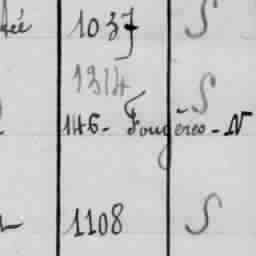 1037 S
1314 S
146 - Fougères - N
1108 S